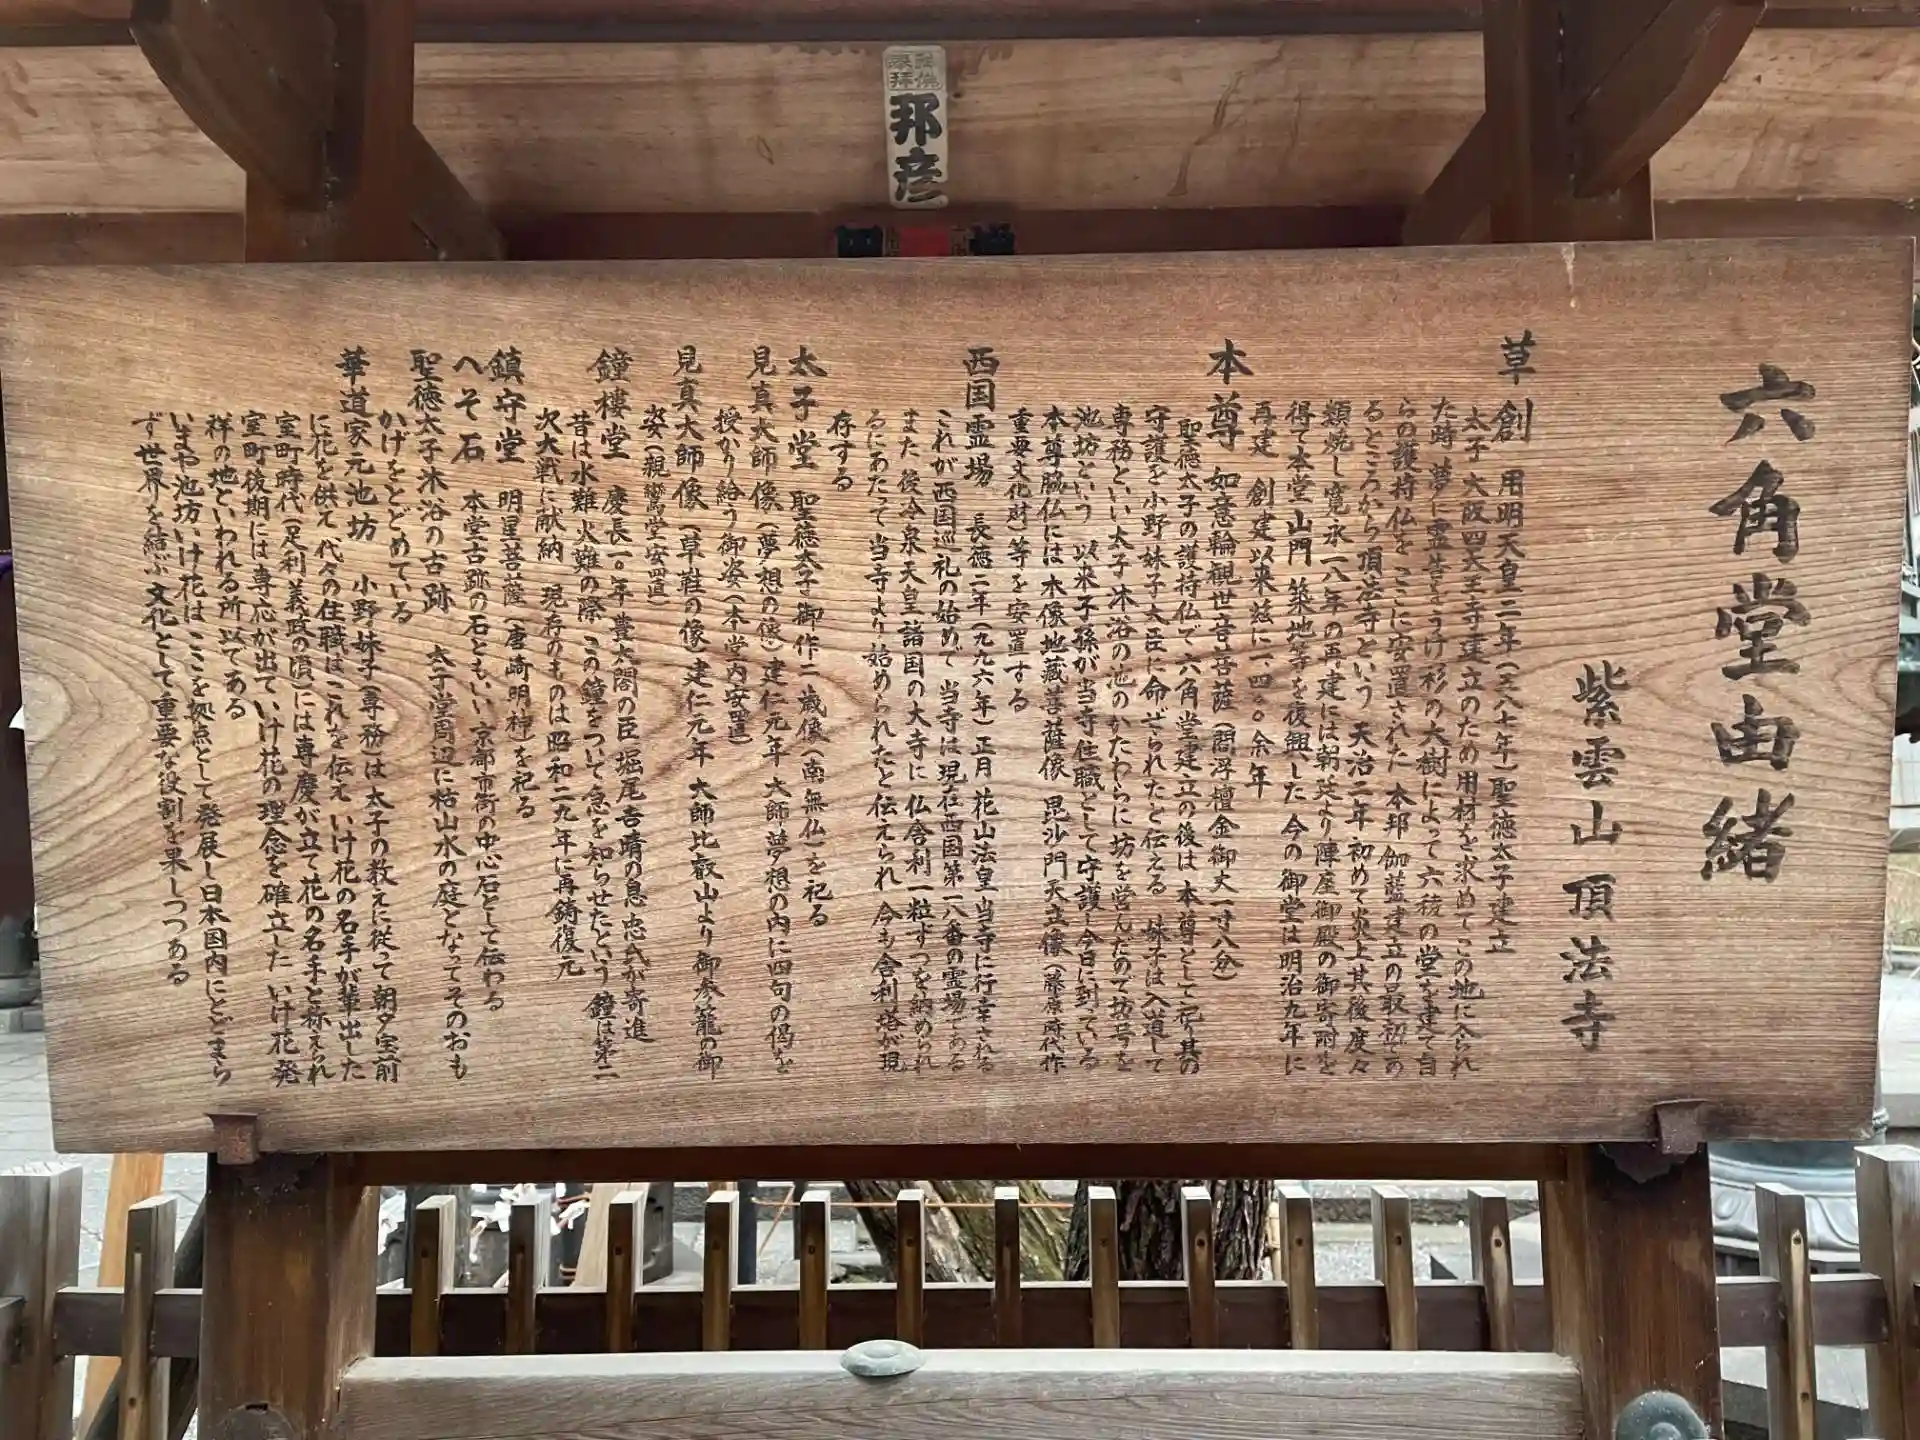 六角堂由緒
紫雲山 頂法寺
草創 用明天皇二年(五八七年)聖徳太子建立
太子 大阪四天王寺建立のため用材を求めてこの地に入られ
た時 夢に霊告をうけ杉の大樹によって六稜の堂を建て自
らの護持仏をここに安置された 本邦伽藍建立の最初であ
るところから頂法寺という 天治二年初めて炎上其後度々
類焼し寛永一八年の再建には朝廷より陣座御殿の御寄附を
得て本堂 山門 築地等を復興した 今の御堂は明治九年に
再建 創建以来茲に一、四〇〇余年
本尊 如意輪観世音菩薩(閻浮檀金御丈一寸八分)
聖徳太子の護持仏で六角堂建立の後は 本尊として祀り其の
守護を小野妹子大臣に命ぜられたと伝える 妹子は入道して
専務といい太子沐浴の池のかたわらに坊を営んだので坊号を
池坊という 以来子孫が当寺住職として守護し今日に到っている
本尊脇仏には木像地蔵菩薩像 毘沙門天立像(藤原時代作
重要文化財)等を安置する
西国霊場 長徳二年(九九六年)正月 花山法皇当寺に行幸される
これが西国巡礼の始めで 当寺は現在西国第一八番の霊場である
また 後冷泉天皇諸国の大寺に仏舎利一粒ずつを納められ
るにあたって当寺より始められたと伝えられ 今も舎利塔が現
存する
太子堂 聖徳太子御作二歳像(南無仏)を祀る
見真大師像(夢想の像)建仁元年 大師夢想の内に四句の偈を
授かり給う御姿(本堂内安置)
見真大師像(草鞋の像)建仁元年 大師比叡山より御参籠の御
姿(親鸞堂安置)
鐘楼堂 慶長一〇年豊太閤の臣 堀尾吉晴の息 忠氏が寄進
昔は水難 火難の際 この鐘をついて急を知らせたという 鐘は第二
次大戦に献納 現存のものは昭和二九年に再鋳復元
鎮守堂 明星菩薩(唐崎明神)を祀る
へそ石 本堂古跡の石ともいい 京都市街の中心石として伝わる
聖徳太子沐浴の古跡 太子堂周辺に枯山水の庭となってそのおも
かげをとどめている
華道家元池坊 小野妹子(専務)は太子の教えに従って朝夕宝前
に花を供え 代々の住職はこれを伝え いけ花の名手が輩出した
室町時代(足利義政の頃)には専慶が立て花の名手と称えられ
室町後期には専応が出ていけ花の理念を確立した いけ花発
祥の地といわれる所以である
いまや池坊いけ花は ここを拠点として発展し日本国内にとどまら
ず世界を結ぶ文化として重要な役割を果しつつある
邦彦